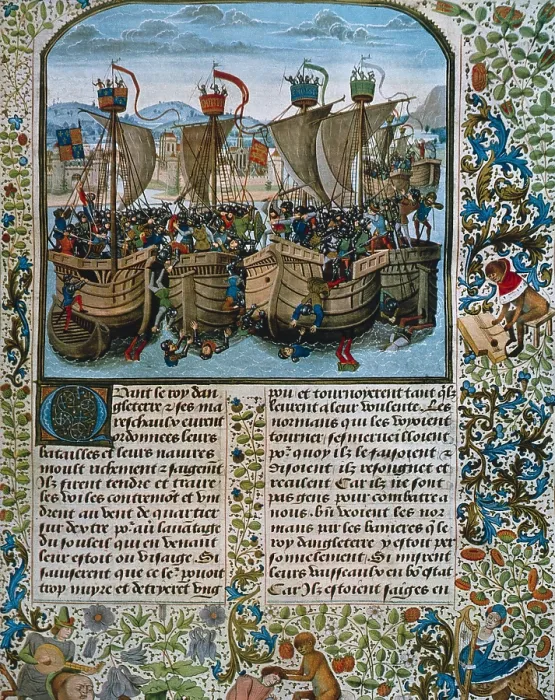 Quant le roy dan
gleterre & ses ma
reschaulx eurent
ordonnees leurs
batailles et leurs navires
moult richement & sagemt
Ilz firent tendre et traire
les voiles contremōt et vin
drent au vent de quartier
sur dextre poʳ lavātage
du souleil qui en venant
leur estoit ou visaige. Si
saviserent que ce les povoit
trop nuyre et detryerent ung
pou et tournoyerent tant qlz
leurent a leur voulente. Les
normans qui les veoyent
tourner sesmerveilloient
poʳ quoy ilz le faisoient &
disoient ilz resongnēt et
reculent Car ilz ne sont
pas gens pour combatre a
nous. bn̄ veoient les nor
mans par les banieres q̄ le
roy dangleterre y estoit per
sonnelement Si mirent
leurs vaisseaulx en bō estat
Car Ilz estoient saiges en